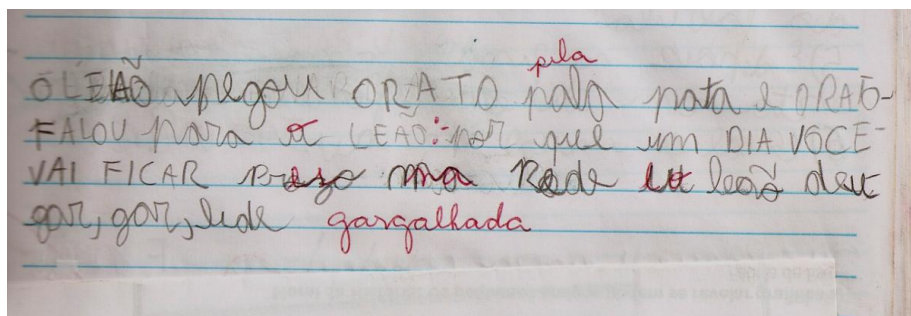 pela
OLEÃO pegou ORATO pala pata e ORATO-
FALOU para o LEÃO:-por que um DIA VOCE-
VAI FICAR preso na Rede e o leão deu
gar,gar,lide gargalhada